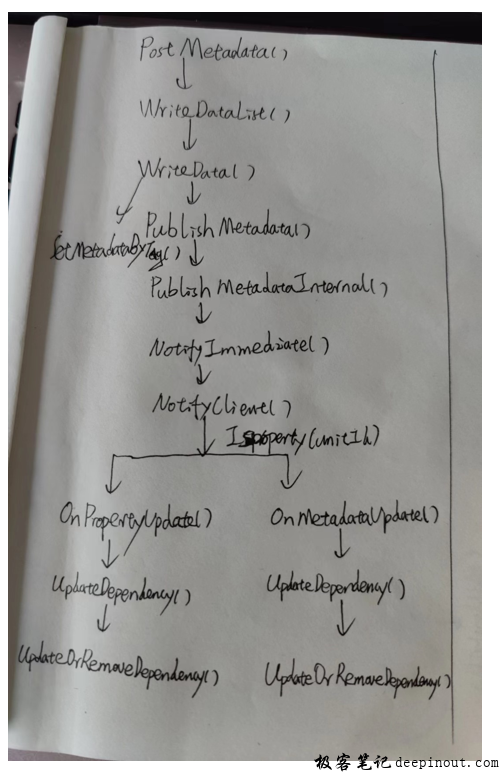 PostMetadata()
WriteDataList()
WriteData()
PublishMetadata()
SetMetadataByTag()
PublishMetadataInternal()
NotifyImmediate()
NotifyClient()
Isproperty(unitId)
OnPropertyUpdate() OnMetadataUpdate()
UpdateDependency() UpdateDependency()
UpdateOrRemoveDependency() UpdateOrRemoveDependency()
极客笔记 deepinout.com